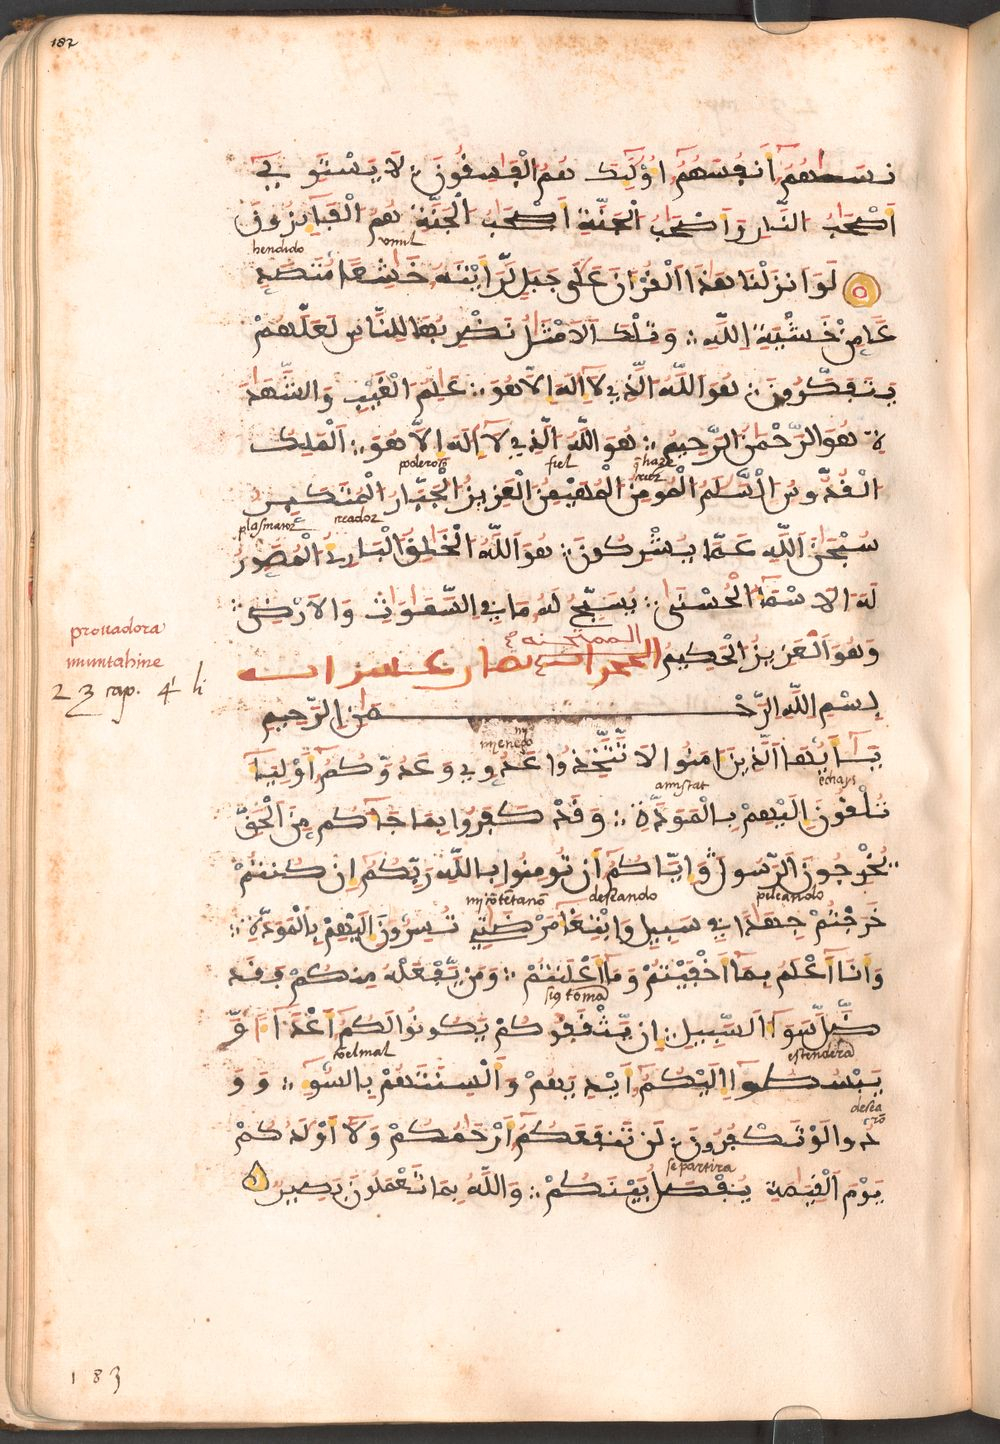 182
نسىٰهُمُۥٓ أَنفُسَهُمُۥٓ أُوْلَٰٓئِكَ هُمُ الْفَٰسِقُونَ لَا يَسْتَوِےٓ
أَصْحَٰبُ النّارِ وَأَصْحَٰبُ الْجَنَّةِ أَصْحَٰبُ الْجَنَّةِ هُمُ الْفَآئِزُونَ
hendido umil
لَوَ انزَلْنَا هَٰذَا اَلْقُرْءَانَ عَلَىٰ جَبَلٍ لَّرَأَيْتَهُۥ خَٰشِعًا مُّتَصَدِّ
عًا مِّنْ خَشْيَةِ اِللَّهِ وَتِلْكَ اَلَامْثَٰلُ نَضْرِبُهَا لِلنَّاسِ لَعَلَّهُمْ
يَتَفَكَّرُونَ هُوَ اَللَّهُ اَلَّذِے لَآ إِلَٰهَ إِلَّا هُوَ عَٰلِمُ اَلْغَيْبِ وَالشَّهَٰدَ
ةِ هُوَ اَلرَّحْمَٰنُ اُلرَّحِيمُ هُوَ اَللَّهُ اُلَّذِے لَآ إِلَٰهَ إِلَّا هُوَ اَلْمَلِكُ
poderoso fiel q̃ haze
اَلْقُدُّوسُ اُلسَّلَٰمُ اُلْمُومِنُ اُلْمُهَيْمِنُ اُلْعَزِيزُ اُلْجَبَّارُ اُلْمُتَكَبِّرُ
plasmador creador
سُبْحَٰنَ اَللَّهِ عَمَّا يُشْرِكُونَ هُوَ اَللَّهُ اُلْخَٰلِقُ اُلْبَارِئُ اُلْمُصَوِّرُ
لَهُ اُلَاسْمَآءُ اُلْحُسْنَىٰ يُسَبِّحُ لَهُۥ مَا فِے اِلسَّمَٰوَٰتِ وَالَارْضِ
وَهُوَ اَلْعَزِيزُ اُلْحَكِيمُ
الممتحنه
prouadora
mumtahine
2 3 cap. 4 li
بِسْمِ اِللَّهِ اِلرَّحْمَٰنِ اِلرَّحِيمِ
mi enemigo
يَٰٓأَيُّهَا اَلَّذِينَ ءَامَنُوا لَا تَتَّخِذُوا عَدُوِّے وَعَدُوَّكُمُۥٓ أَوْلِيَآءَ
amistat echays
تُلْقُونَ إِلَيْهِمْ بِالْمَوَدَّةِ وَقَدْ كَفَرُوا بِمَا جَآءَكُم مِّنَ اَلْحَقِّ
يُخْرِجُونَ اَلرَّسُولَ وَإِيَّاكُمُۥٓ أَن تُومِنُوا بِاللَّهِ رَبِّكُمُۥٓ إِن كُنتُمْ
mi cõtẽtam̃o deseando peleando
خَرَجْتُمْ جِهَٰدًا فِے سَبِيلِے وَابْتِغَآءَ مَرْضَاتِے تُسِرُّونَ إِلَيْهِم بِالْمَوَدَّةِ
وَأَنَآ أَعْلَمُ بِمَآ أَخْفَيْتُمْ وَمَآ أَعْلَنتُمْ وَمَنْ يَّفْعَلْهُ مِنكُمْ فَقَد
ضَّلَّ سَوَآءَ اَلسَّبِيلِ إِنْ يَّثْقَفُوكُمْ يَكُونُوا لَكُمُۥٓ أَعْدَآءً وَّ
cõ el mal estendera
يَبْسُطُوٓا إِلَيْكُمُۥٓ أَيْدِيَهُمْ وَأَلْسِنَتَهُمْ بِالسُّوٓءِ وَوَ
desearõ
دُّوا لَوْ تَكْفُرُونَ لَن تَنفَعَكُمُۥٓ أَرْحَامُكُمْ وَلَآ أَوْلَٰدُكُمْ
se partira
يَوْمَ اَلْقِيَٰمَةِ يُفْصَلُ بَيْنَكُمْ وَاللَّهُ بِمَا تَعْمَلُونَ بَصِيرٌ
183